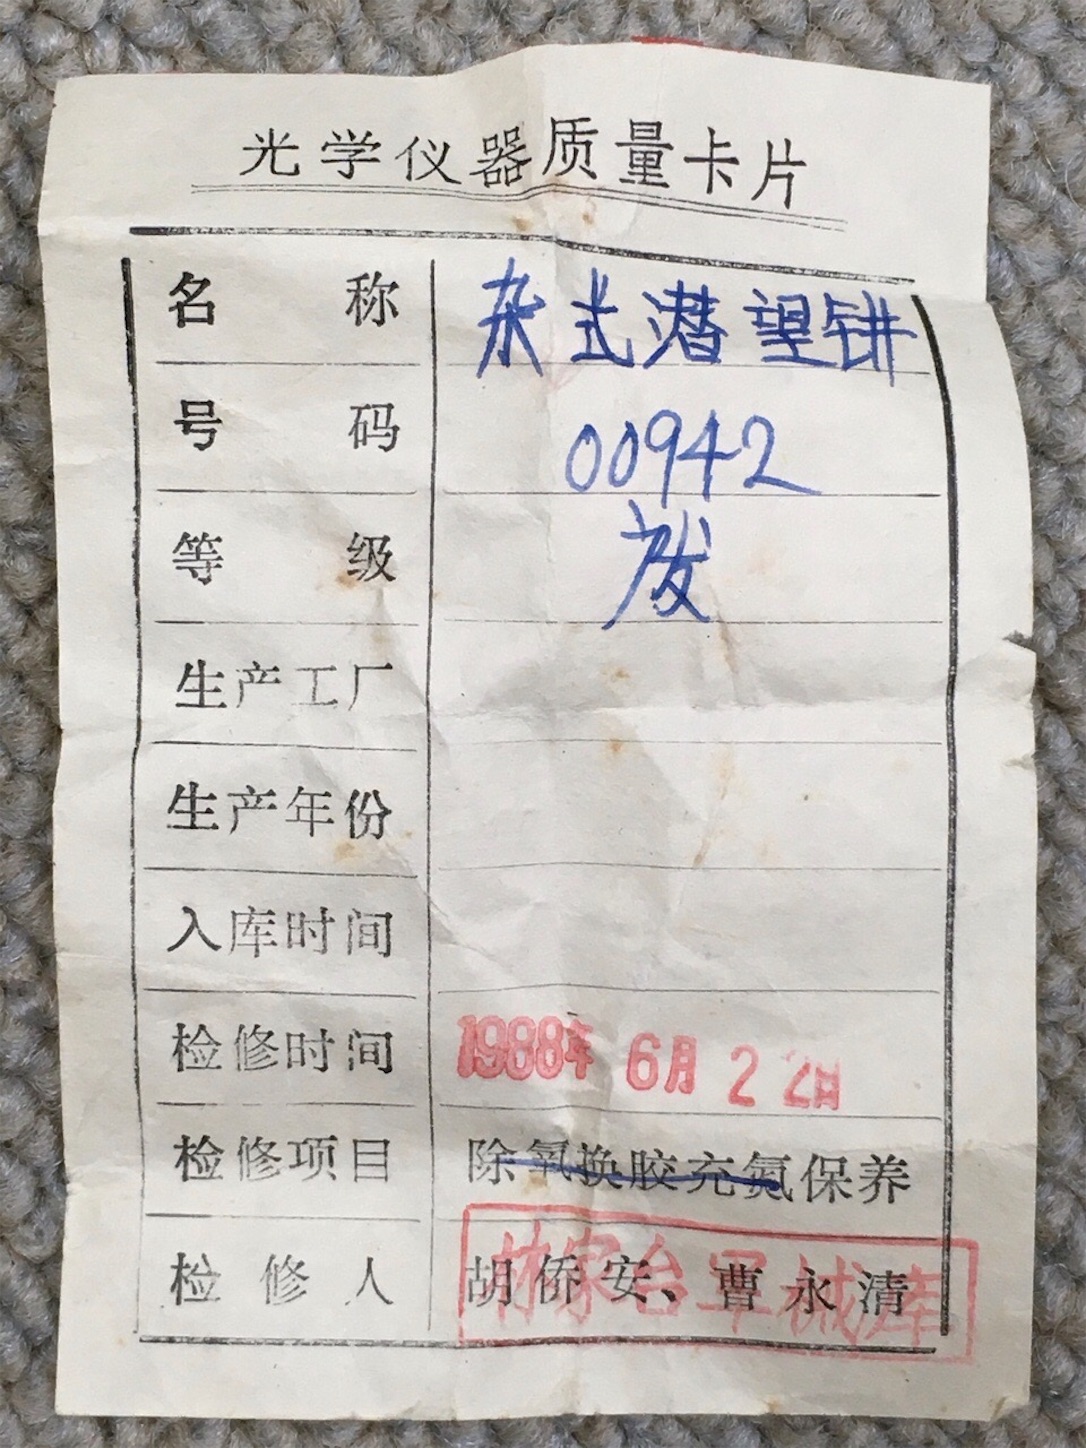 光学仪器质量卡片
名称 杂式潜望饼
号码 00942
等级 废
生产工厂
生产年份
入库时间
检修时间 1988年 6月 22日
检修项目 除氧换胶充氮保养
检修人 胡侨安、曹永清
林家台军械库